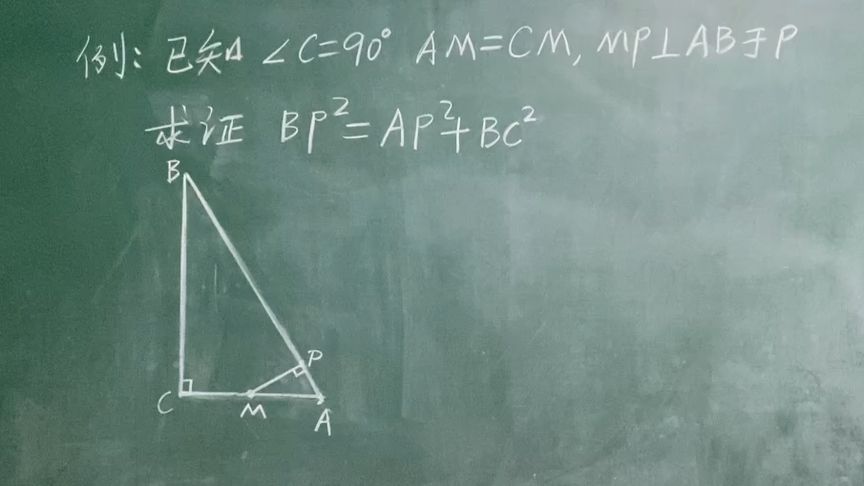 例: 已知 ∠C=90° AM=CM, MP⊥AB于P
求证 BP²=AP²+BC²
B
P
C
M
A